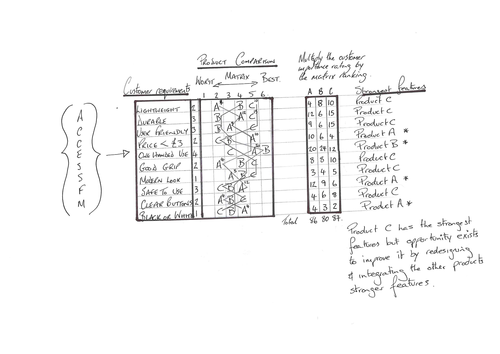 PRODUCT COMPARISON
MATRIX
WORST
BEST.
1 2 3 4 5 6.
Customer requirements
Multiply the customer
importance rating by
the matrix ranking.
A B C
Strongest features
LIGHTWEIGHT 2 4 8 10 Product C
DURABLE 3 12 6 15 Product C
USER FRIENDLY 3 9 6 15 Product C
PRICE < £3 2 10 6 4 Product A *
ONE HANDED USE 4 20 24 12 Product B *
GOOD GRIP 2 8 5 10 Product C
MODERN LOOK 1 3 4 5 Product C
SAFE TO USE 3 12 9 6 Product A *
CLEAR BUTTONS 2 4 6 8 Product C
BLACK OR WHITE 1 4 3 2 Product A *
Total 86 80 87.
A
C
C
E
S
S
F
M
Product C has the strongest
features but opportunity exists
to improve it by redesigning
& integrating the other products
stronger features.